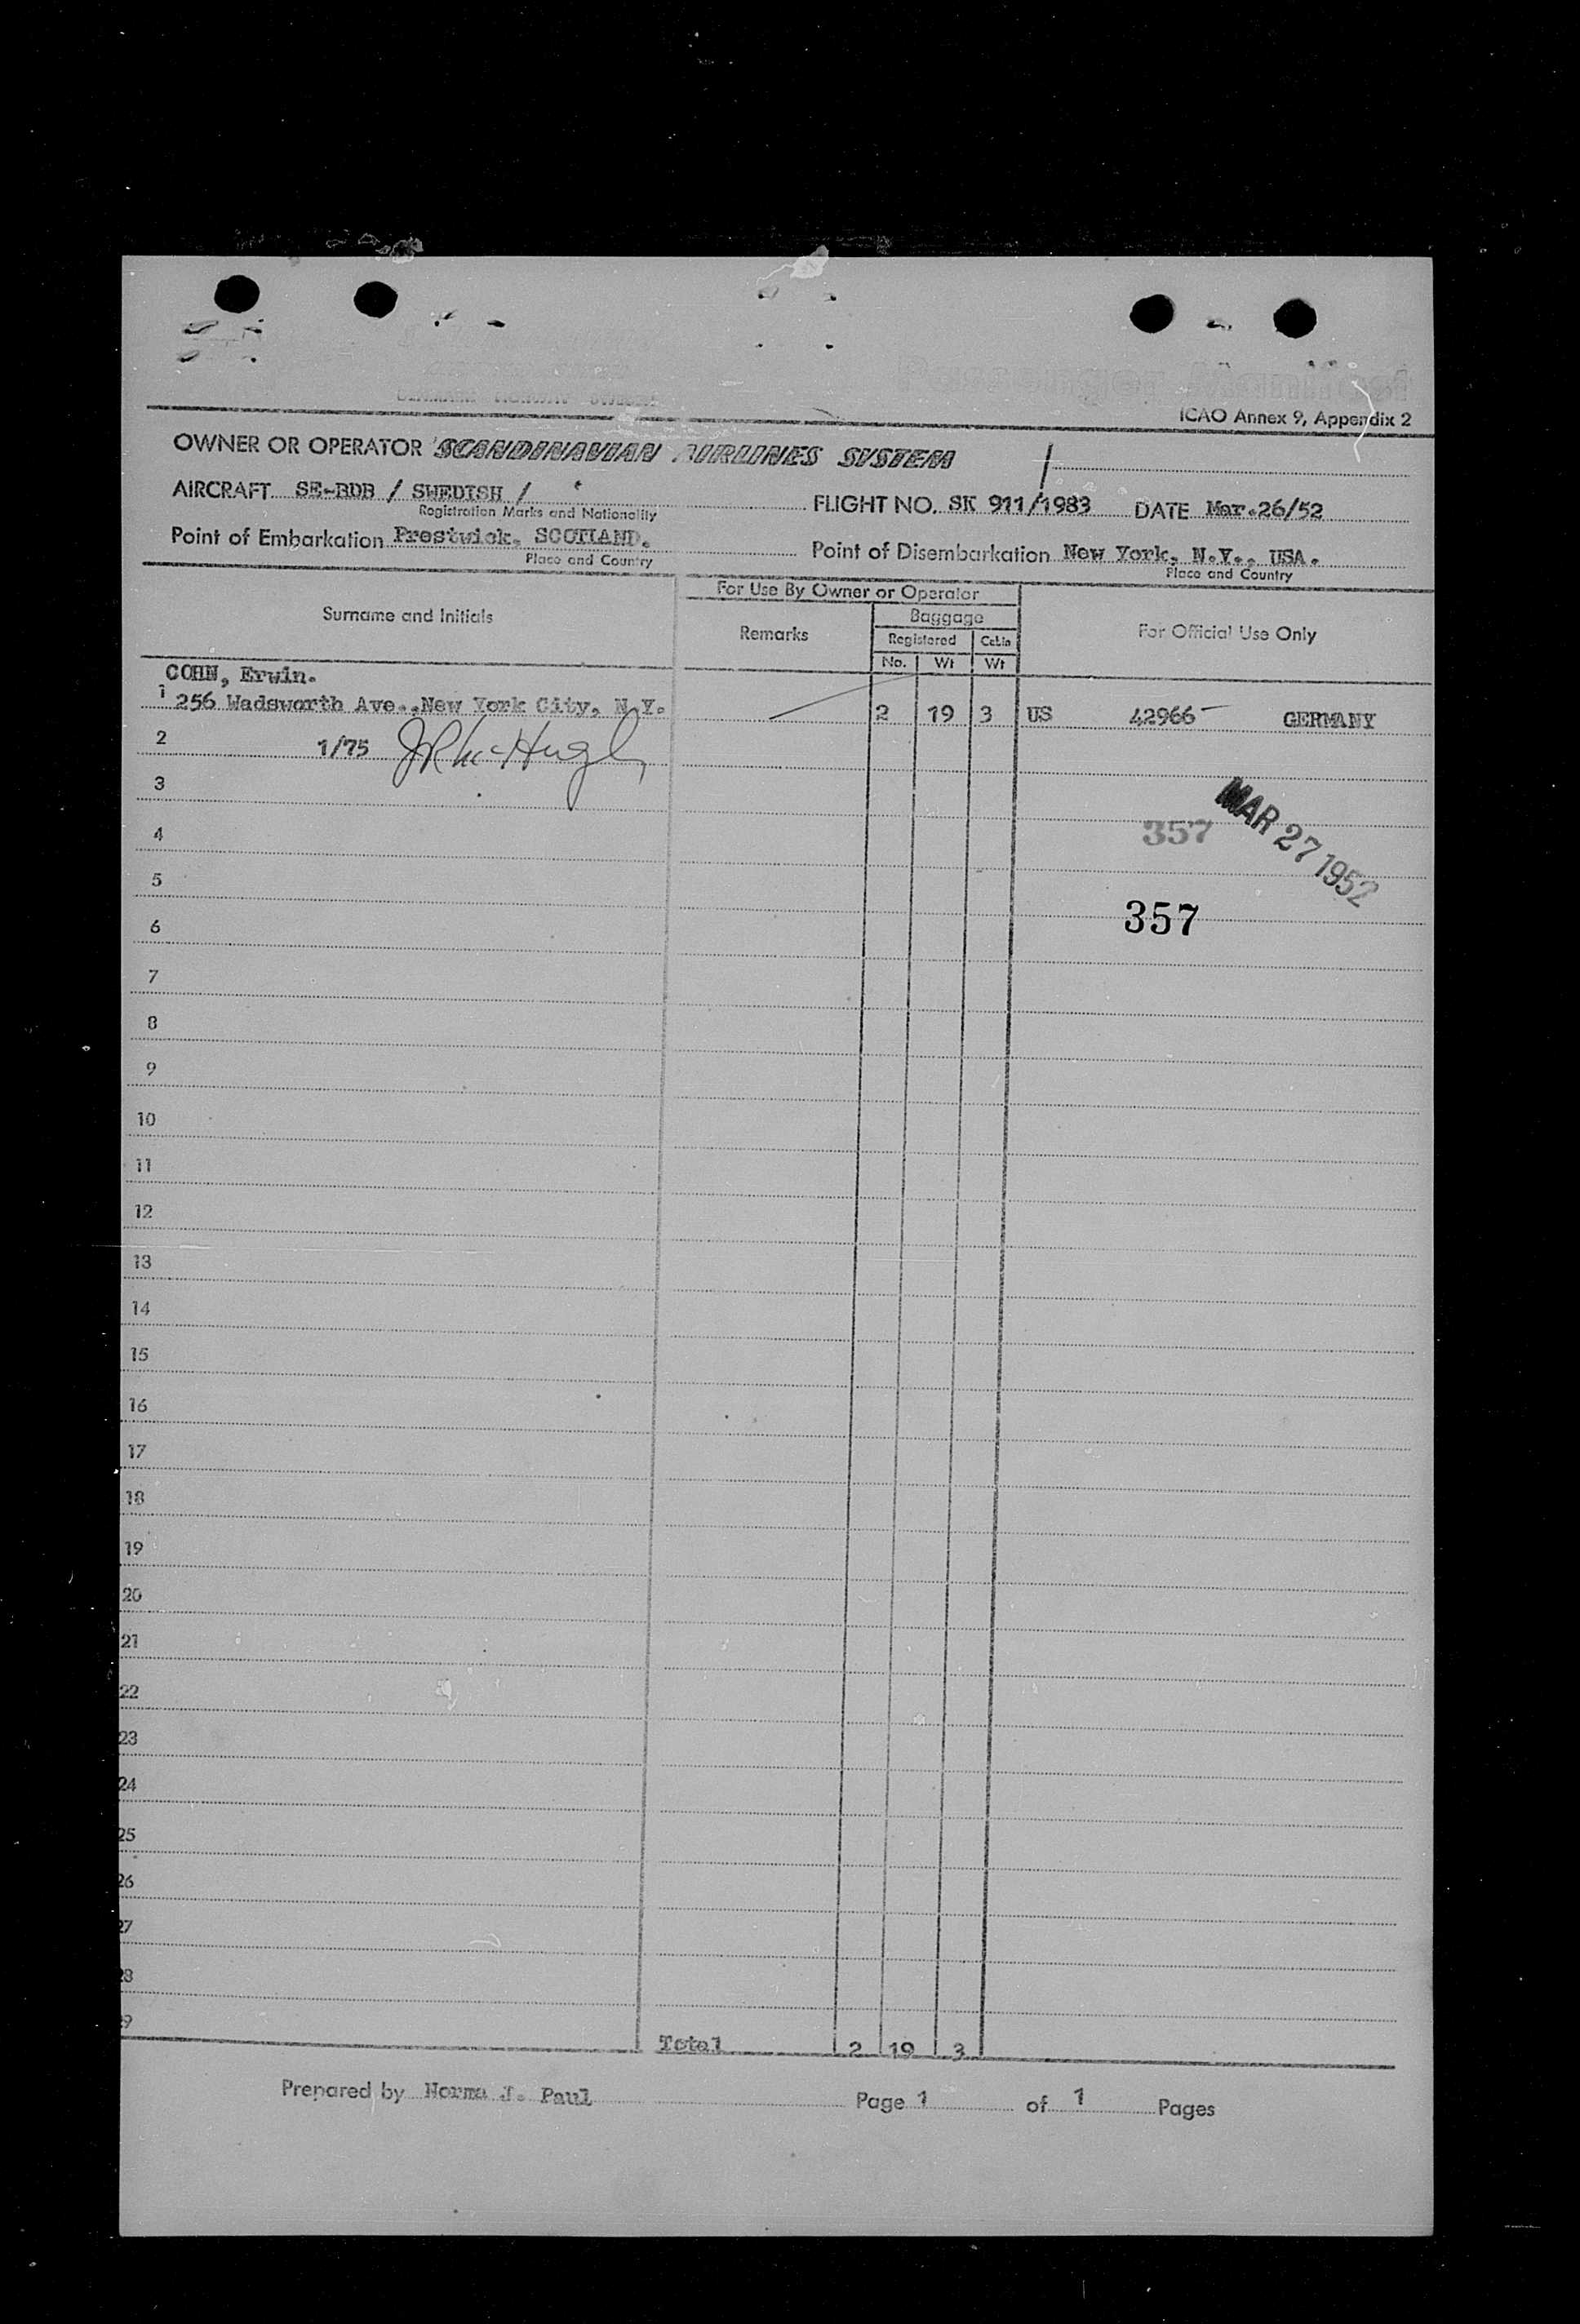 ICAO Annex 9, Appendix 2
OWNER OR OPERATOR SCANDINAVIAN AIRLINES SYSTEM
AIRCRAFT SE-BDB / SWEDISH /
Registration Marks and Nationality
FLIGHT NO. SK 911/1983 DATE Mar.26/52
Point of Embarkation Prestwick, SCOTLAND.
Place and Country
Point of Disembarkation New York, N.Y., USA.
Place and Country
Surname and Initials
For Use By Owner or Operator
Remarks
Baggage
Registered Cabin
No. Wt Wt
For Official Use Only
COHN, Erwin.
1 256 Wadsworth Ave.,New York City, N.Y. 2 19 3 US 42966 GERMANY
2 1/75 JR McHugh
3
MAR 27 1952
4 357
5
357
6
7
8
9
10
11
12
13
14
15
16
17
18
19
20
21
22
23
24
25
26
27
28
29
Total 2 19 3
Prepared by Norma J. Paul Page 1 of 1 Pages